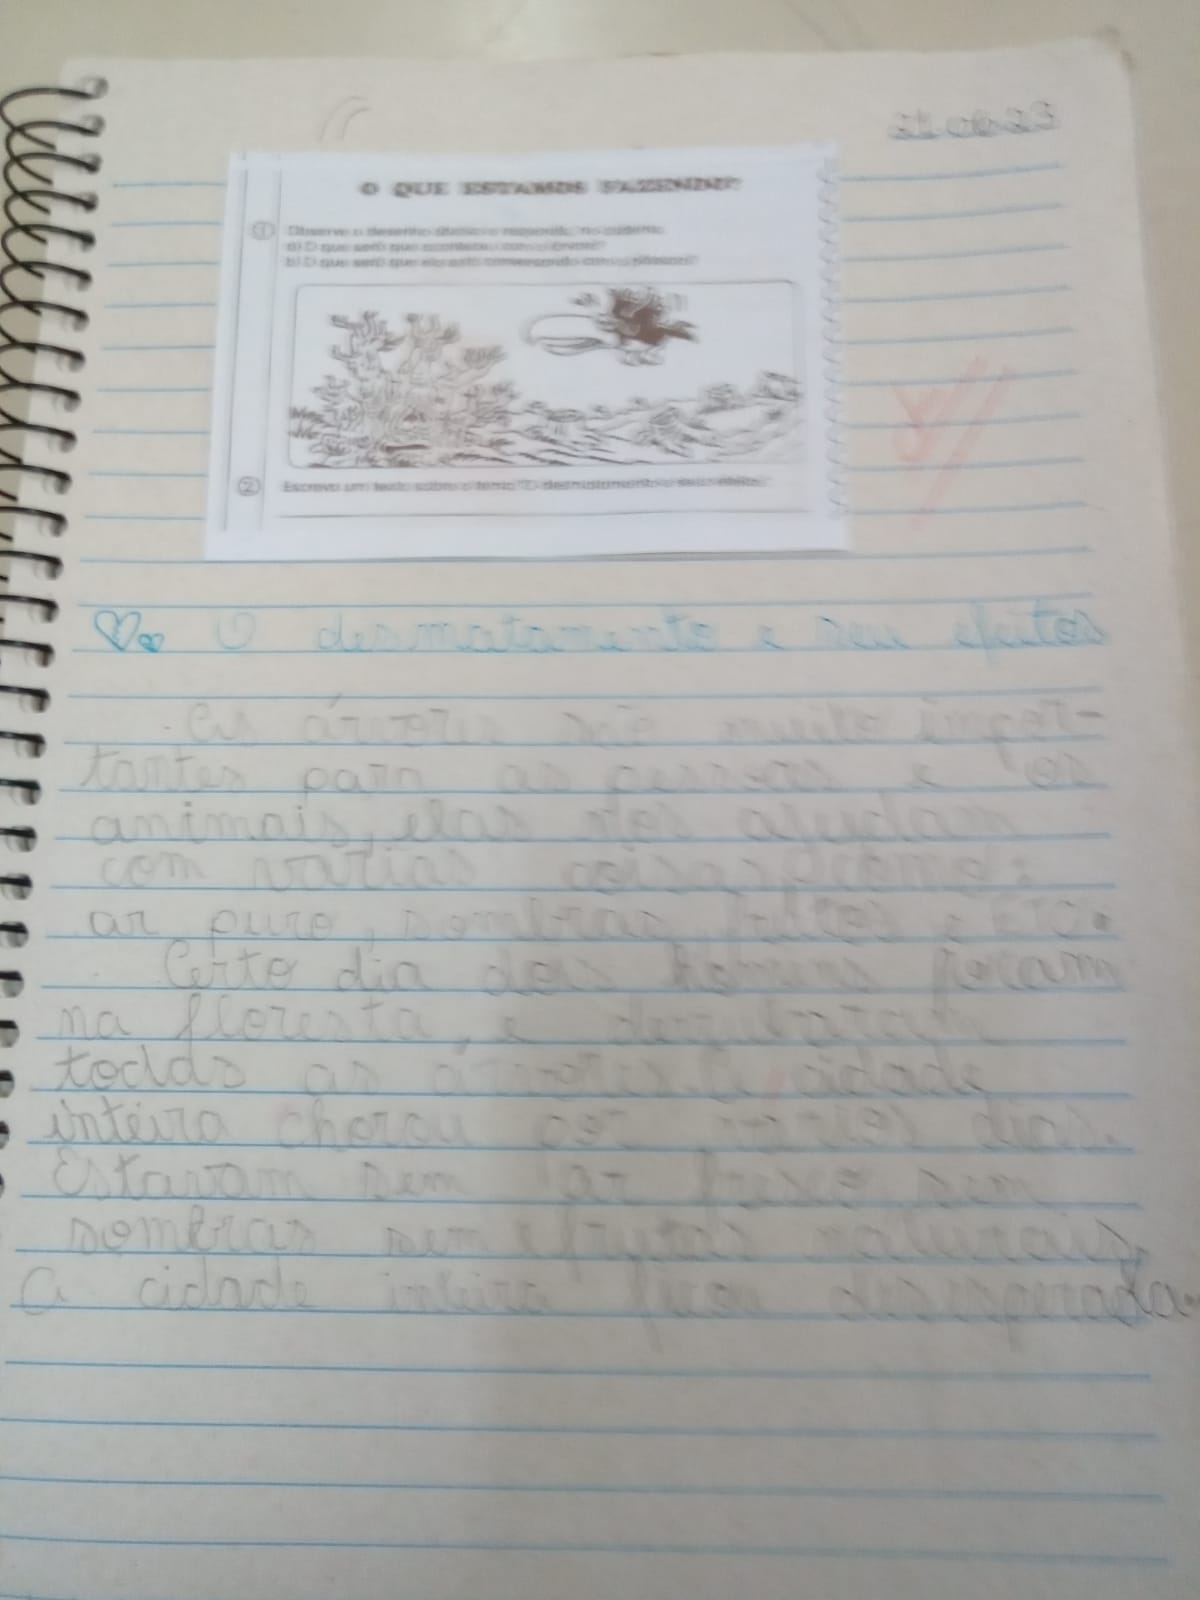 21 06 23
O QUE ESTAMOS FAZENDO?
1 Observe o desenho abaixo e responda, no caderno.
a) O que será que aconteceu com a árvore?
b) O que será que ela está conversando com o pássaro?
2 Escreva um texto sobre o tema "O desmatamento e seus efeitos".
O desmatamento e seu efeitos
As árvores são muito impor-
tantes para as pessoas e os
animais, elas nos ajudam
com varias coisas como:
ar puro, sombras, frutos e ETC.
Certo dia dois homens foram
na floresta, e derrubaram
todas as árvores. A cidade
inteira chorou por varios dias.
Estavam sem ar fresco sem
sombras sem frutas naturais,
A cidade inteira ficou desesperada.